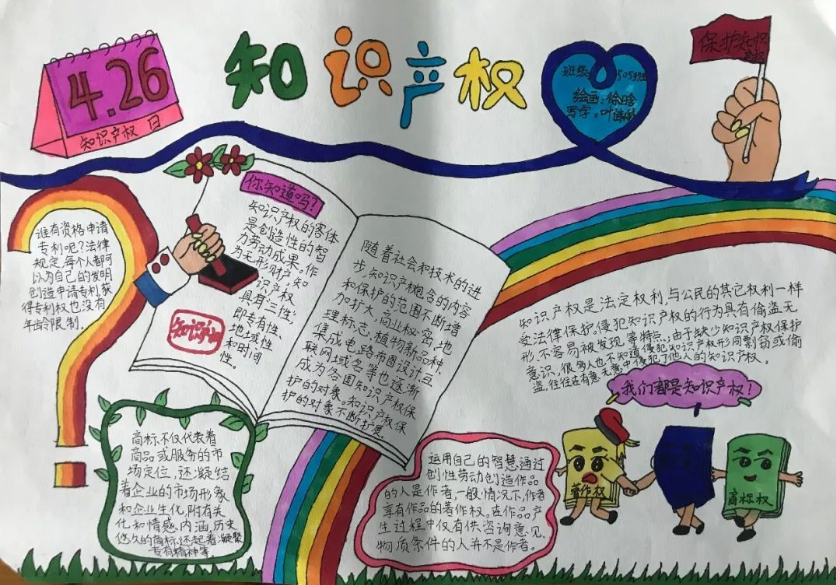 4.26
知识产权 日
知识产权
班级
绘画：徐晗
写字：叶
保护知识
产权
谁有资格申请
专利呢？法律
规定，每个人都可
以为自己的发明
创造申请专利获
得专利权也没有
年龄限制.
你知道吗？
知识产权的客体
是创造性的智
力劳动成果。作
为无形财产，知
识产权
具有三性：
即专有性、
地域性
和时间
性。
知识产权
随着社会和技术的进
步，知识产权包含的内容
和保护的范围不断增
加扩大，商业秘密，地
理标志，植物新品种，
集成电路布图设计，互
联网域名等也逐渐
成为各国知识产权保
护的对象。知识产权保
护的对象不断扩展。
知识产权是法定权利，与公民的其它权利一样
受法律保护，侵犯知识产权的行为具有偷盗无
形，不容易被发现等特点；由于缺少知识产权保护
意识，很多人也不知道侵犯知识产权形同剽窃或偷
盗，往往在有意无意中侵犯了他人的知识产权。
我们都是知识产权！
著作权
商标权
商标，不仅代表着
商品或服务的市
场定位，还凝结
着企业的市场形象
和企业生化，附有关
化和情感，内涵，历史
悠久的商标，还起着凝聚
专有精神等
运用自己的智慧通过
创性劳动创造作品
的人是作者，一般情况下，作者
享有作品的著作权。在作品产
生过程中仅有供咨询意见、
物质条件的人并不是作者。